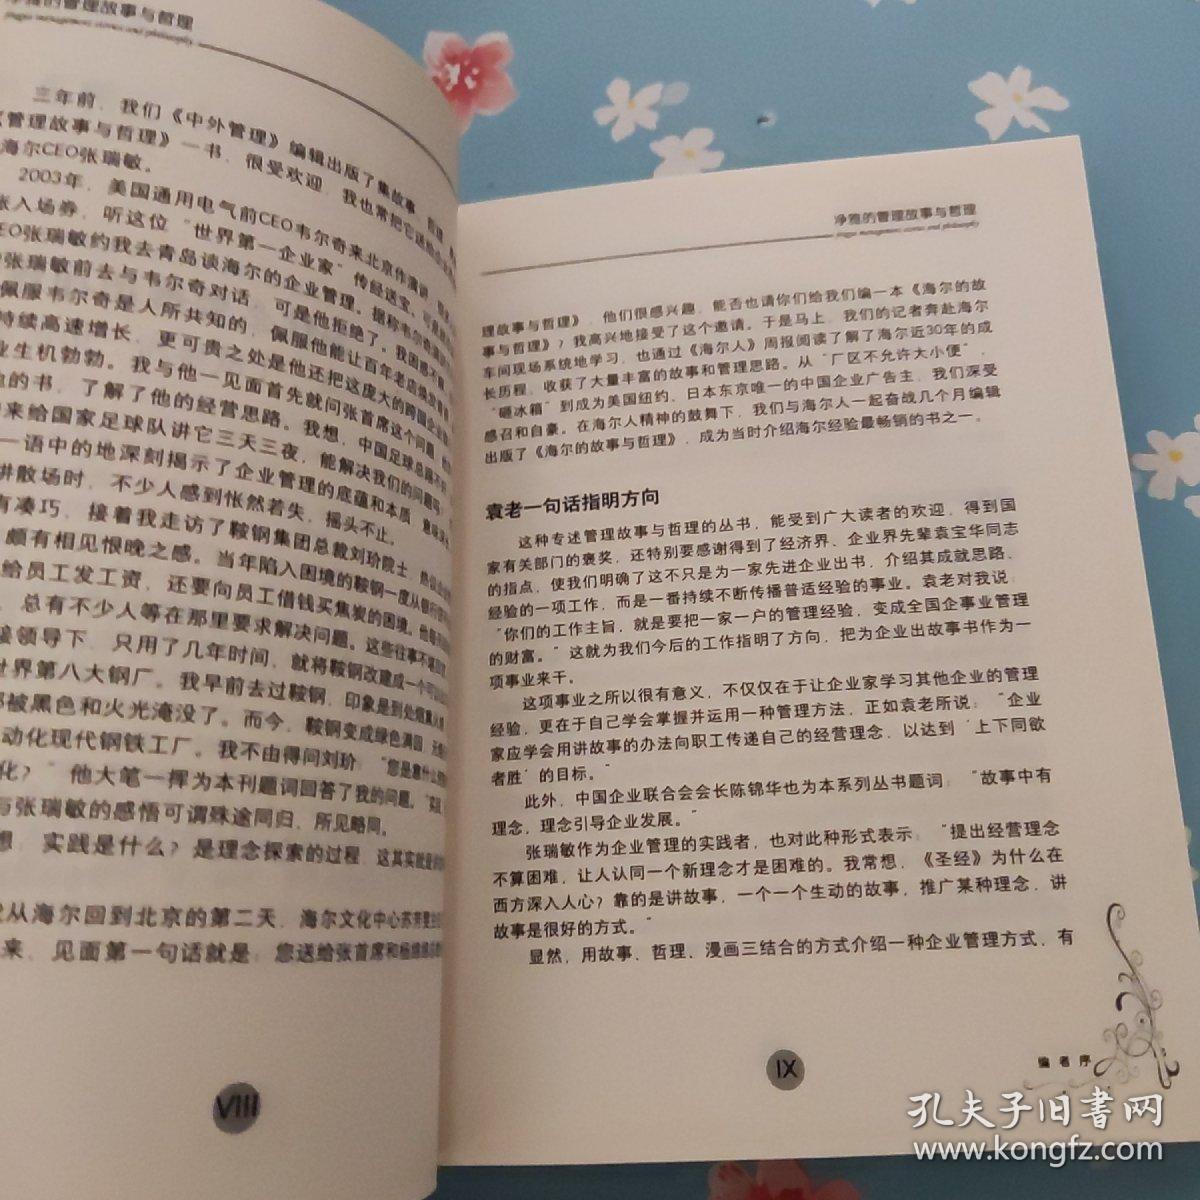 净雅的管理故事与哲理
三年前，我们《中外管理》编辑出版了集故事、哲理
《管理故事与哲理》一书，很受欢迎，我也常把它送给
海尔CEO张瑞敏。
2003年，美国通用电气前CEO韦尔奇来北京作演讲
张入场券，听这位“世界第一企业家”传经送宝。可是
EO张瑞敏约我去青岛谈海尔的企业管理。据称韦尔奇
张瑞敏前去与韦尔奇对话，可是他拒绝了。我困惑不
佩服韦尔奇是人所共知的，佩服他能让百年老店焕发
持续高速增长，更可贵之处是他还把这庞大的跨国企业
业生机勃勃。我与他一见面首先就问张首席这个问题
的书，了解了他的经营思路。我想，中国足球总踢不好
来给国家足球队讲它三天三夜，能解决我们的问题吗
一语中的地深刻揭示了企业管理的底蕴和本质
讲散场时，不少人感到怅然若失，摇头不止。
有凑巧，接着我走访了鞍钢集团总裁刘玠院士
颇有相见恨晚之感。当年陷入困境的鞍钢一度从银行
给员工发工资，还要向员工借钱买焦炭的困境。他每
，总有不少人等在那里要求解决问题。这些往事不堪回
接领导下，只用了几年时间，就将鞍钢改建成一个可
世界第八大钢厂。我早前去过鞍钢，印象是到处烟熏
都被黑色和火光淹没了。而今，鞍钢变成绿色满园
动化现代钢铁工厂。我不由得问刘玠：“您是靠什么
化？”他大笔一挥为本刊题词回答了我的问题。“实践
与张瑞敏的感悟可谓殊途同归，所见略同。
想：实践是什么？是理念探索的过程，这其实就是
从海尔回到北京的第二天，海尔文化中心苏芳雯
来，见面第一句话就是：您送给张首席和杨绵绵
VIII
净雅的管理故事与哲理
理故事与哲理》，他们很感兴趣，能否也请你们给我们编一本《海尔的故
事与哲理》？我高兴地接受了这个邀请。于是马上，我们的记者奔赴海尔
车间现场系统地学习，也通过《海尔人》周报阅读了解了海尔近30年的成
长历程，收获了大量丰富的故事和管理思路。从“厂区不允许大小便”，
“砸冰箱”到成为美国纽约、日本东京唯一的中国企业广告主，我们深受
感召和自豪。在海尔人精神的鼓舞下，我们与海尔人一起奋战几个月编辑
出版了《海尔的故事与哲理》，成为当时介绍海尔经验最畅销的书之一。
袁老一句话指明方向
这种专述管理故事与哲理的丛书，能受到广大读者的欢迎，得到国
家有关部门的褒奖，还特别要感谢得到了经济界、企业界先辈袁宝华同志
的指点，使我们明确了这不只是为一家先进企业出书，介绍其成就思路、
经验的一项工作，而是一番持续不断传播普适经验的事业。袁老对我说：
“你们的工作主旨，就是要把一家一户的管理经验，变成全国企事业管理
的财富。”这就为我们今后的工作指明了方向，把为企业出故事书作为一
项事业来干。
这项事业之所以很有意义，不仅仅在于让企业家学习其他企业的管理
经验，更在于自己学会掌握并运用一种管理方法，正如袁老所说：“企业
家应学会用讲故事的办法向职工传递自己的经营理念，以达到‘上下同欲
者胜’的目标。”
此外，中国企业联合会会长陈锦华也为本系列丛书题词：“故事中有
理念，理念引导企业发展。”
张瑞敏作为企业管理的实践者，也对此种形式表示：“提出经营理念
不算困难，让人认同一个新理念才是困难的。我常想，《圣经》为什么在
西方深入人心？靠的是讲故事，一个一个生动的故事，推广某种理念，讲
故事是很好的方式。”
显然，用故事、哲理、漫画三结合的方式介绍一种企业管理方式，有
IX
编者序
孔夫子旧书网
www.kongfz.com